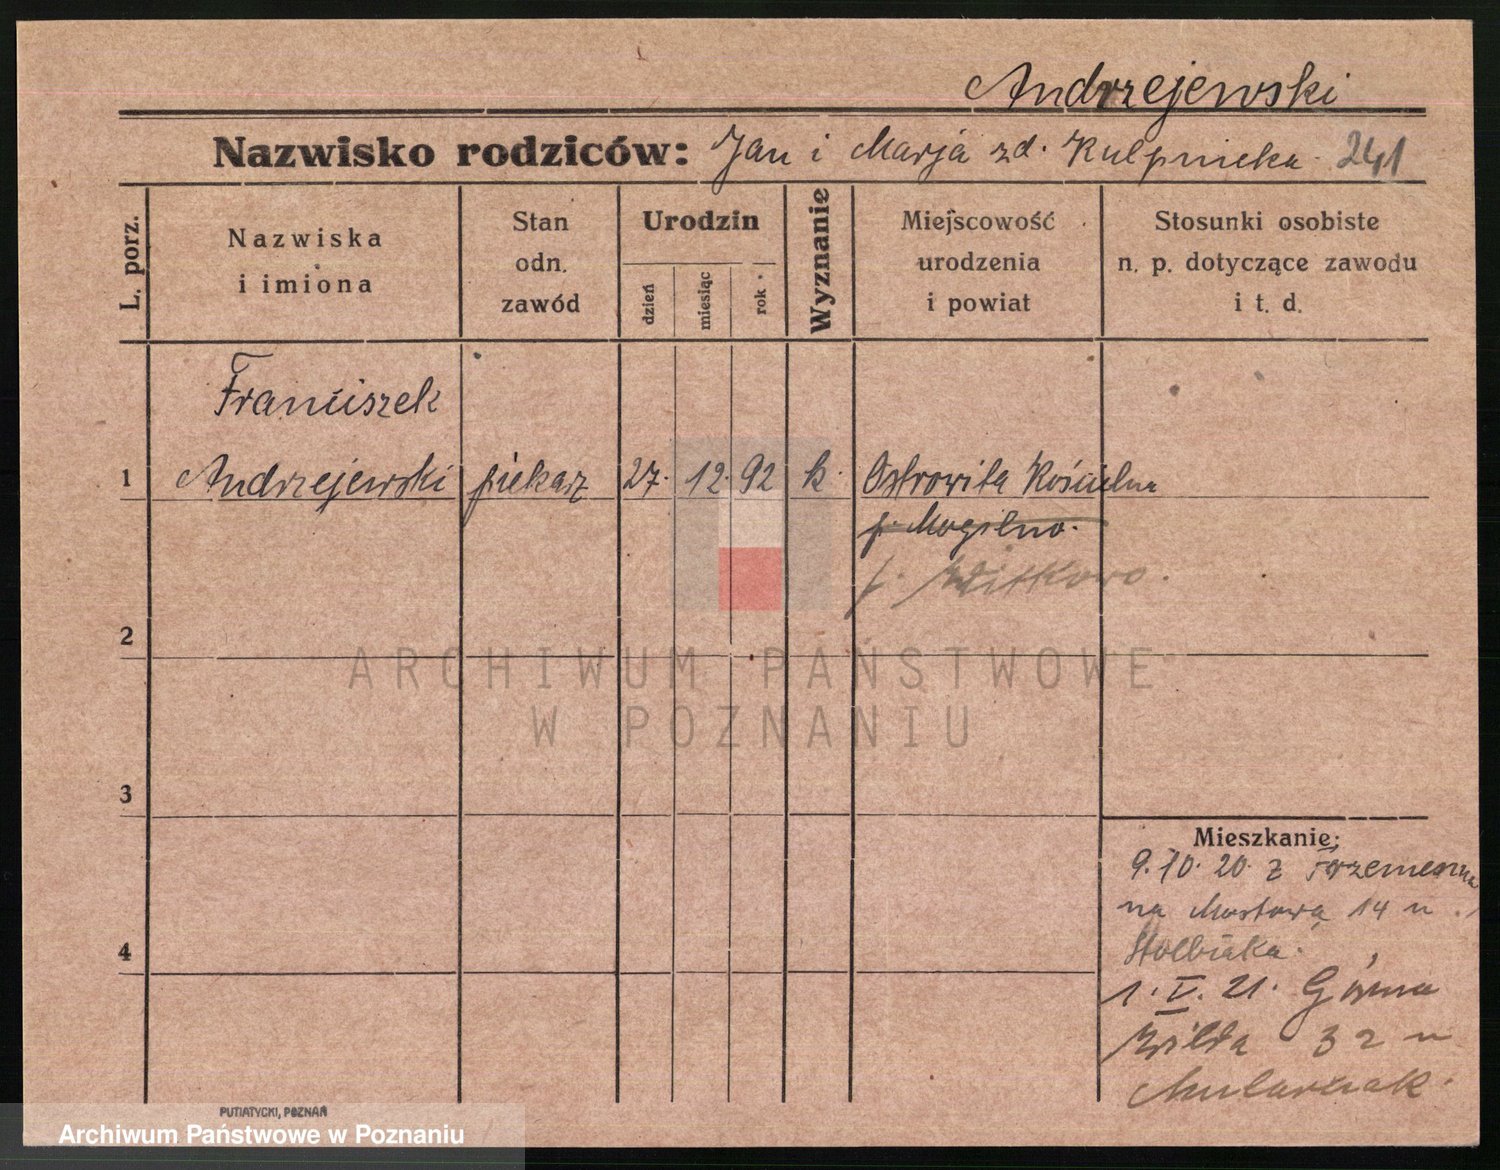 Andrzejewski
Nazwisko rodziców: Jan i Marja zd. Kulpnicka 241
L. porz.
Nazwiska
i imiona
Stan
odn.
zawód
Urodzin
dzień
miesiąc
rok
Wyznanie
Miejscowość
urodzenia
i powiat
Stosunki osobiste
n. p. dotyczące zawodu
i t. d.
Franciszek
1 Andrzejewski piekarz 27. 12. 92 k. Ostrowita Kościelna
p. Mogilno.
p. Witkowo.
2
ARCHIWUM PAŃSTWOWE
W POZNANIU
3
Mieszkanie:
9. 10. 20. z Trzemeszna
na Mostową 14 u
4
1. V. 21. Górna
Wilda 32 u
Mularczak.
PUTIATYCKI, POZNAŃ
Archiwum Państwowe w Poznaniu